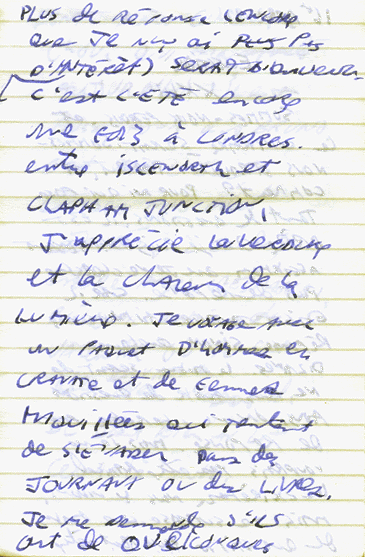 PLUS de RÉPONSE (encore
que Je n'y ai PLUS Pas
D'INTÉRÊT) SERAIT
C'est L'ÉTÉ encore
une FOIS à LONDRES.
entre ISLEWORTH et
CLAPHAM JUNCTION,
J'APPRÉCIE
et la chaleur de la
LUMIÈRE. Je voyage avec
un PAQUET D'hommes en
CRAVATE et de Femmes
MAQUILLées qui tentent
de S'ÉGARER DANS des
JOURNAUX OU des LIVRES.
Je me demande S'ILS
ont de QUELCONQUES